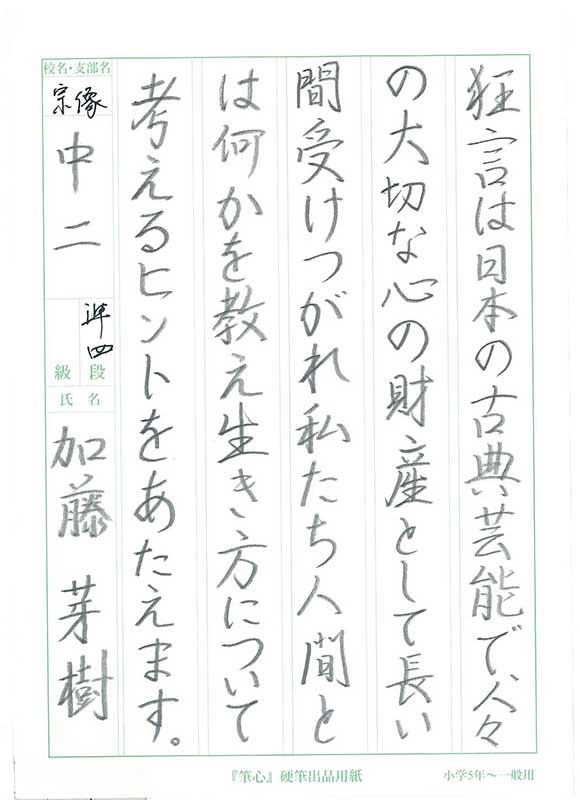 狂言は日本の古典芸能で、人々
の大切な心の財産として長い
間受けつがれ私たち人間と
は何かを教え生き方について
考えるヒントをあたえます。
校名・支部名
宗像
中二
準四
級 段
氏 名
加藤 芽樹
『筆心』硬筆出品用紙
小学5年～一般用